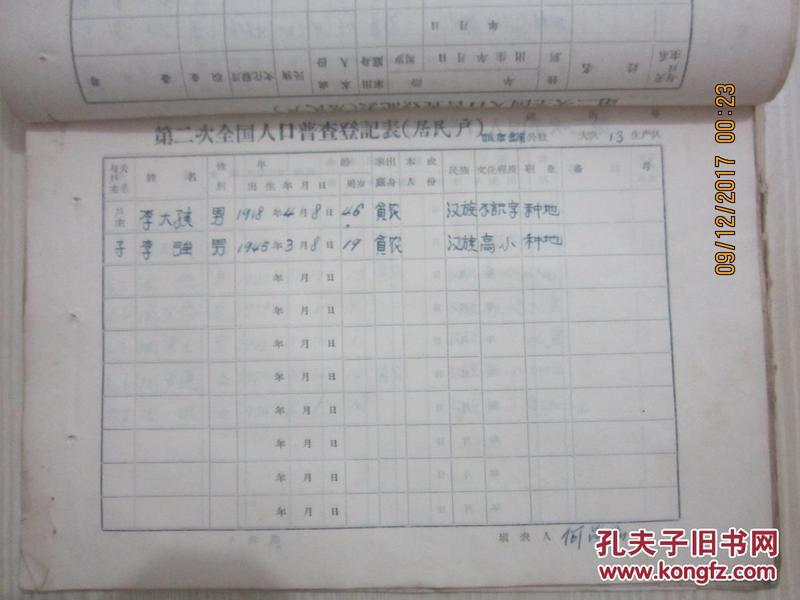 年 月 日
年 月 日
第二次全国人口普查登記表(居民户) 公社 大队 13 生产队
与户主关系 姓名 性别 年龄 出生年月日 周岁 家庭出身 本人成份 民族 文化程度 职业 备考
户主 李大孩 男 1918年4月8日 46 貧农 汉族 不識字 种地
子 李強 男 1945年3月8日 19 貧农 汉族 高小 种地
年 月 日
年 月 日
年 月 日
年 月 日
年 月 日
年 月 日
年 月 日
年 月 日
填表人 何
09/12/2017 00:23
孔夫子旧书网